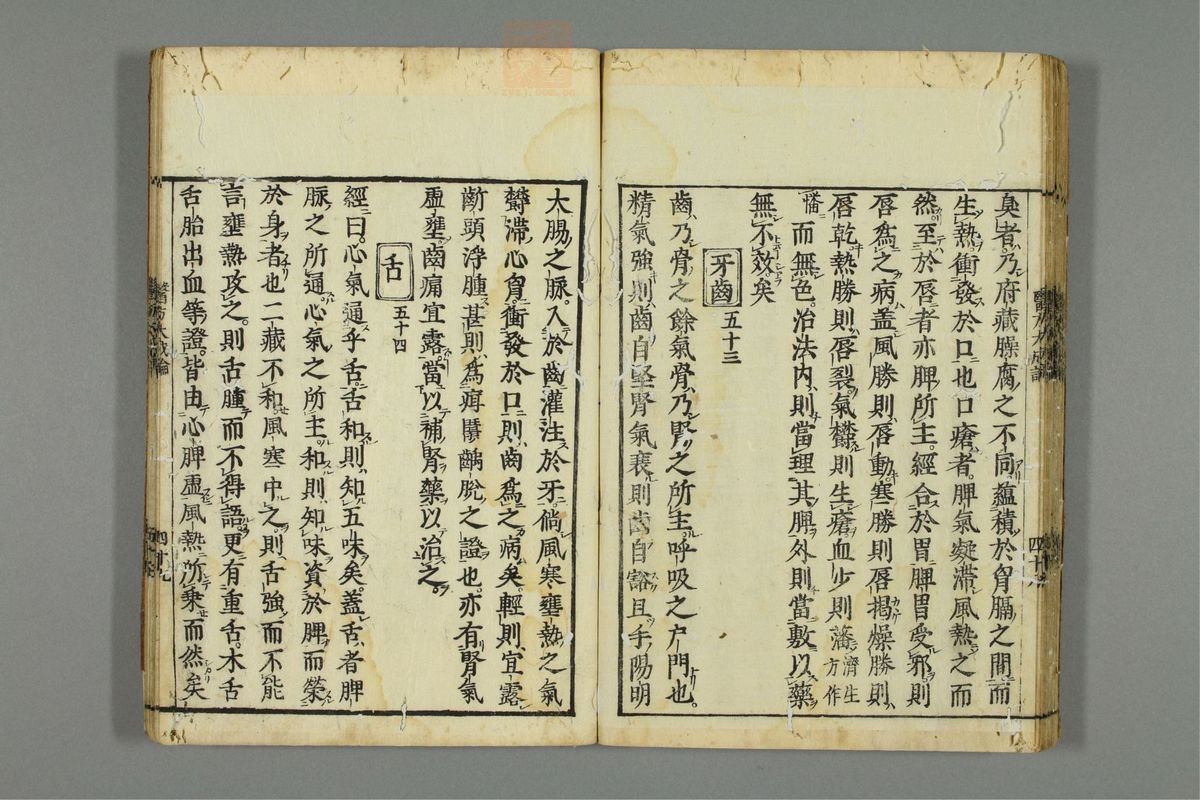 臭者乃府藏臊腐之不同蘊積於胷膈之間而
生熱衝發於口也口瘡者脾氣凝滯風熱之而
然至於唇者亦脾所主經合於胃脾胃受邪則
唇爲之病盖風勝則唇動寒勝則唇揭燥勝則
唇乾熱勝則唇裂氣欝則生瘡血少則瀋濟生方作
㿗而無色治法内則當理其脾外則當敷以藥
無不效矣
牙齒 五十三
齒乃骨之餘氣骨乃腎之所主呼吸之户門也
精氣強則齒自堅腎氣衰則齒自豁且手陽明
大腸之脉入於齒灌注於牙倘風寒壅熱之氣
欝滯心胷衝發於口則齒爲之病矣輕則宜露
齗頭浮腫甚則爲疳䘌齲脫之證也亦有腎氣
虛壅齒痛宜露當以補腎藥以治之
舌 五十四
經曰心氣通乎舌舌和則知五味矣盖舌者脾
脉之所通心氣之所主和則知味資於脾而榮
於身者也二藏不和風寒中之則舌強而不能
言壅熱攻之則舌腫而不得語更有重舌木舌
舌胎出血等證皆由心脾虛風熱所乗而然矣